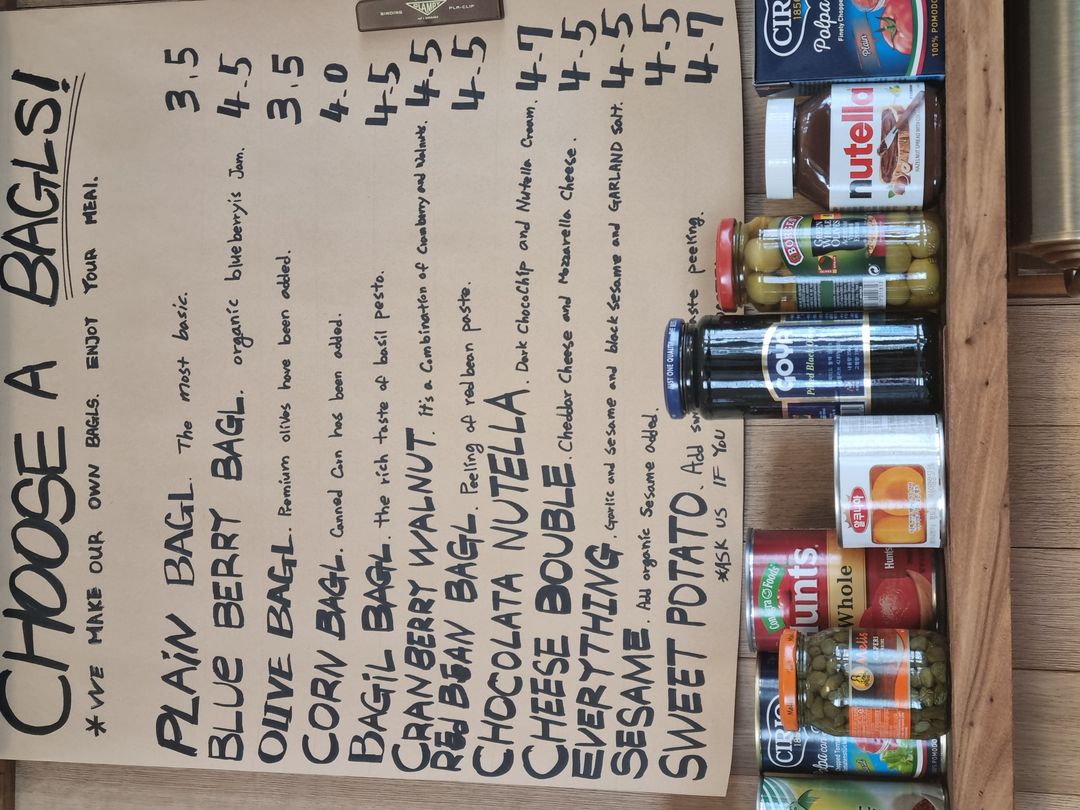 CHOOSE A BAGLS!
*WE MAKE OUR OWN BAGLS. ENJOY YOUR MEAl.
PLAiN BAGL. The most basic. 3.5
BLUe BERRY BAGL. organic blueberryis Jam. 4.5
OLIVE BAGL. Premium olives have been added. 3.5
CORN BAGL. Canned Corn has been added. 4.0
BAGiL BAGL. the rich taste of basil pesto. 4.5
CRANBERRY WALNUT. it's a Combination of Cranberry and Walnuts. 4.5
REd BEAN BAGL. Peeling of red bean paste. 4.5
CHOCOLATA NUTELLA. Dark ChocoChip and Nutella Cream. 4.7
CHEESE DOUBLE. Cheddar Cheese and Mozzarella Cheese. 4.5
EVERYTHING. Garlic and sesame and black sesame and GARLAND salt. 4.5
SESAME. Add organic Sesame added. 4.5
SWEET POTATO. Add sw aste peeling. 4.7
*ASK US IF YOU
JUST ONE QUALITY
CIRIO
Polpa con
Melis
CAPERS
ConAgra Foods
Hunts
Whole
Hunts
알쿠니아
GOYA
Pitted Black
BORGES
GREEN
WHOLE
OLIVES
nutella
HAZELNUT SPREAD WITH
CIRIO
1856
Polpa
Finely Chopped
Plain
100% POMODO